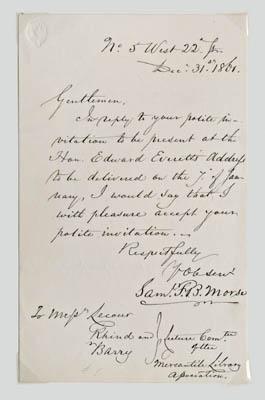 No 5 West 22d St.
Dec. 31st 1861.
Gentlemen,
In reply to your polite in-
vitation to be present at the
Hon. Edward Everett's Address
to be delivered on the 7th of Jan-
uary, I would say that I
with pleasure accept your
polite invitation.
Respectfully
Yr Ob serv
Saml. F. B. Morse
To Messrs
Rhind and
Barry
Lecture Comtee
of the
Mercantile Library
Association.